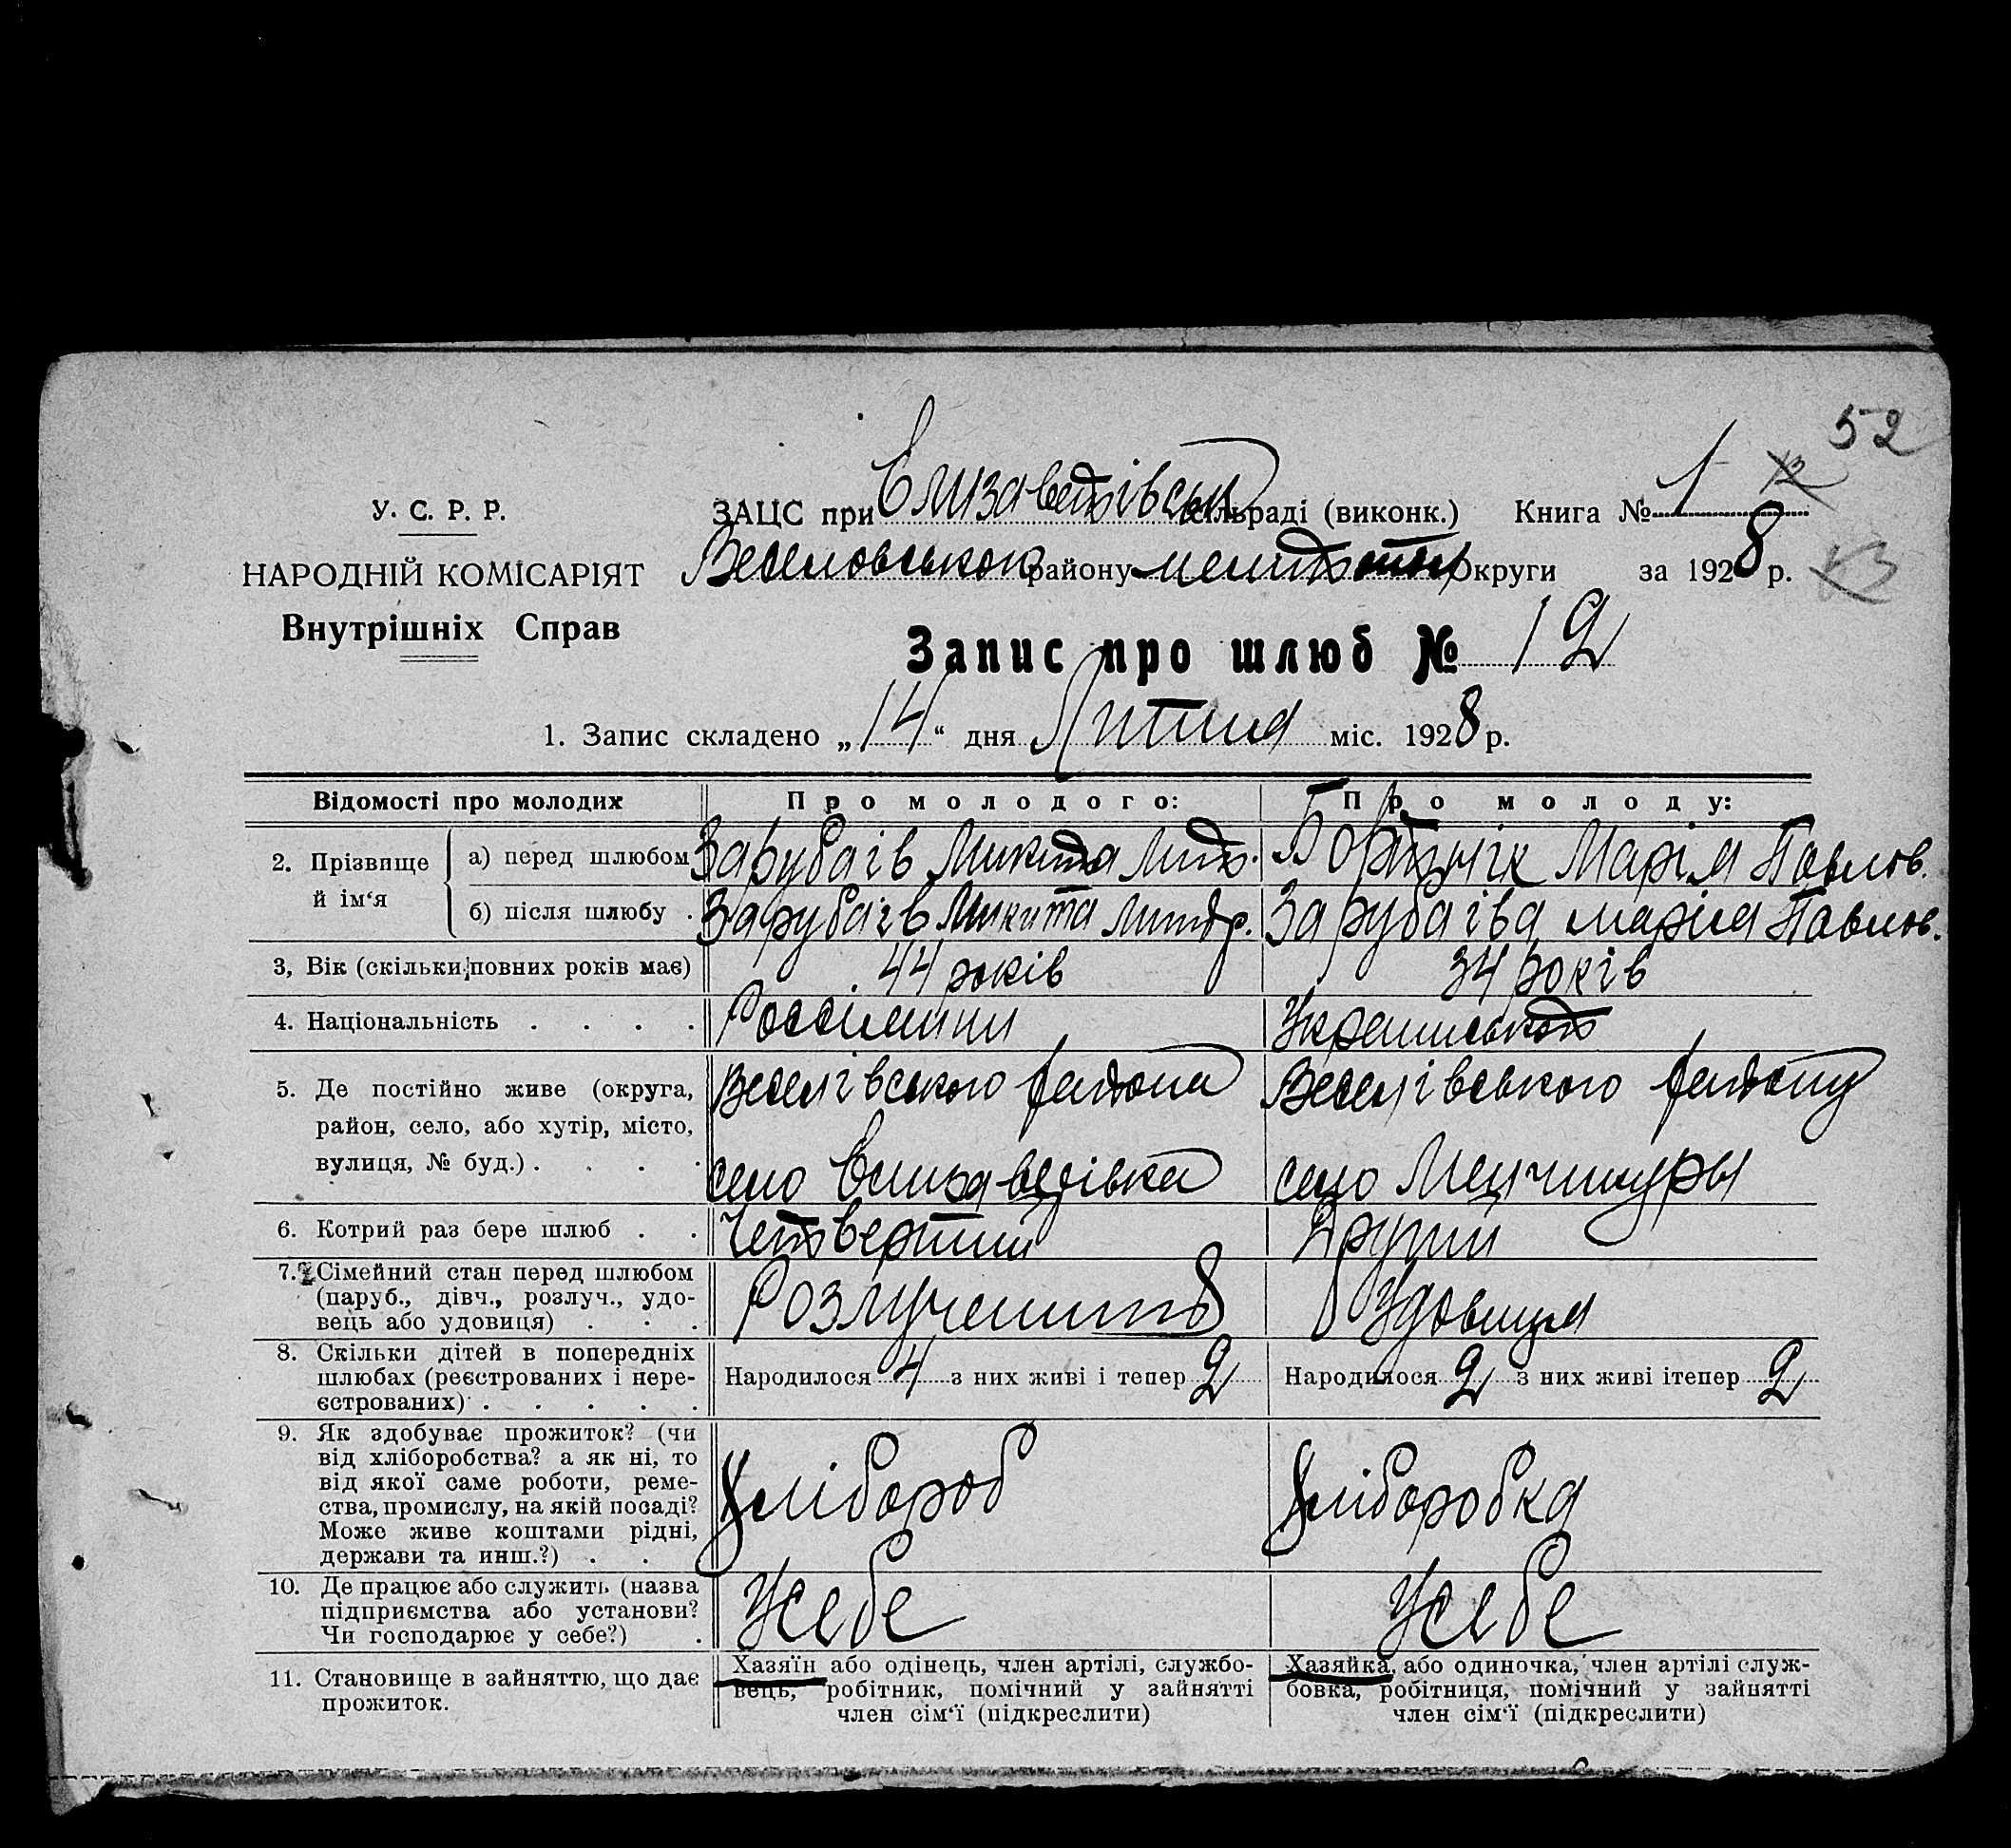 52
12
У. С. Р. Р.
ЗАЦС при Єлизаветівській сільраді (виконк.) Книга № 1
НАРОДНІЙ КОМІСАРІЯТ
Веселовського району Мелитоп округи за 1928 р.
53
Внутрішніх Справ
Запис про шлюб № 12
1. Запис складено „14“ дня Липня міс. 1928 р.
Відомості про молодих Про молодого: Про молоду:
2. Прізвище й ім‘я
а) перед шлюбом Зарубаів Микита Митр. Бортнік Марія Павлов.
б) після шлюбу . Зарубаів Микита Митр. Зарубаіва Марія Павлов.
3, Вік (скільки повних років має) 44 років 34 років
4. Національність . . . . Россіянин Украинська
5. Де постійно живе (округа, район, село, або хутір, місто, вулиця, № буд.) . . . .
Веселівського району Веселівського району
село Єлизаветівка село
6. Котрий раз бере шлюб . . Четвертий Другий
7. Сімейний стан перед шлюбом (паруб., дівч., розлуч., удовець або удовиця) . . . Розлучений Удовиця
8. Скільки дітей в попередніх шлюбах (реєстрованих і нереєстрованих) . . . . .
Народилося 4 з них живі і тепер 2 Народилося 2 з них живі ітепер 2
9. Як здобуває прожиток? (чи від хліборобства? а як ні, то від якої саме роботи, ремества, промислу, на якій посаді? Може живе коштами рідні, держави та инш.?) . .
Хлібороб Хліборобка
10. Де працює або служить (назва підприємства або установи? Чи господарює у себе?) .
У себе У себе
11. Становище в зайняттю, що дає прожиток.
Хазяїн або одінець, член артілі, службовець, робітник, помічний у зайнятті член сім‘ї (підкреслити)
Хазяйка, або одиночка, член артілі службовка, робітниця, помічний у зайнятті член сім‘ї (підкреслити)